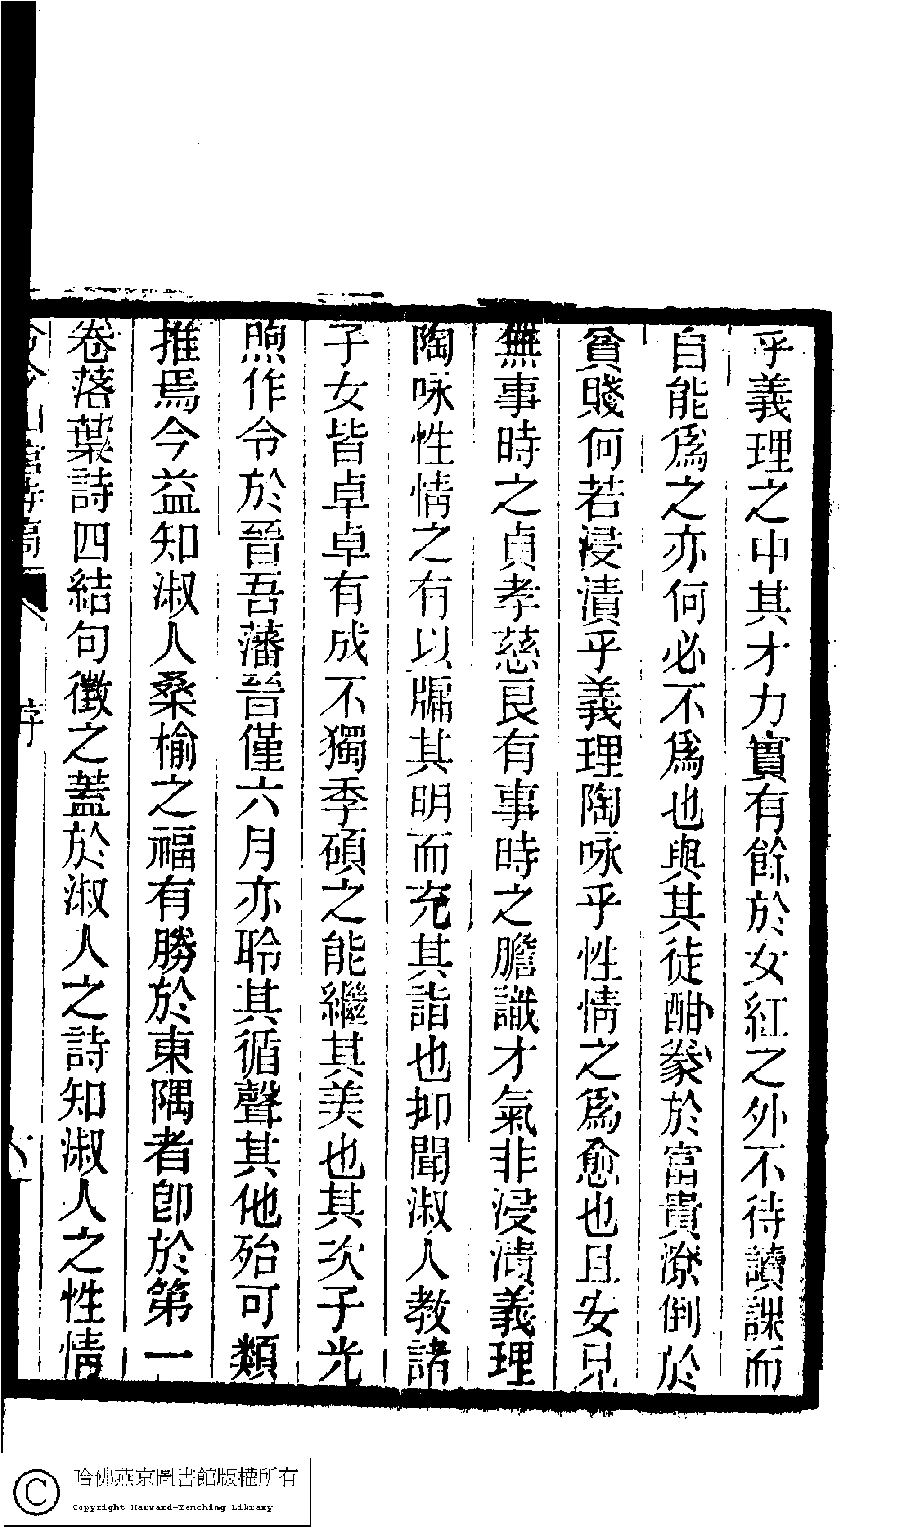 乎義理之中其才力實有餘於女紅之外不待讀課而
自能爲之亦何必不爲也與其徒酣豢於富貴潦倒於
貧賤何若浸漬乎義理陶咏乎性情之爲愈也且安見
無事時之貞孝慈良有事時之膽識才氣非浸漬義理
陶咏性情之有以牖其明而充其詣也抑聞淑人教諸
子女皆卓卓有成不獨季碩之能繼其美也其次子光
煦作令於晉吾藩晉僅六月亦聆其循聲其他殆可類
推焉今益知淑人桑榆之福有勝於東隅者卽於第一
卷落葉詩四結句徵之蓋於淑人之詩知淑人之性情
序
哈佛燕京圖書館版權所有
Copyright Harvard-Yenching Library